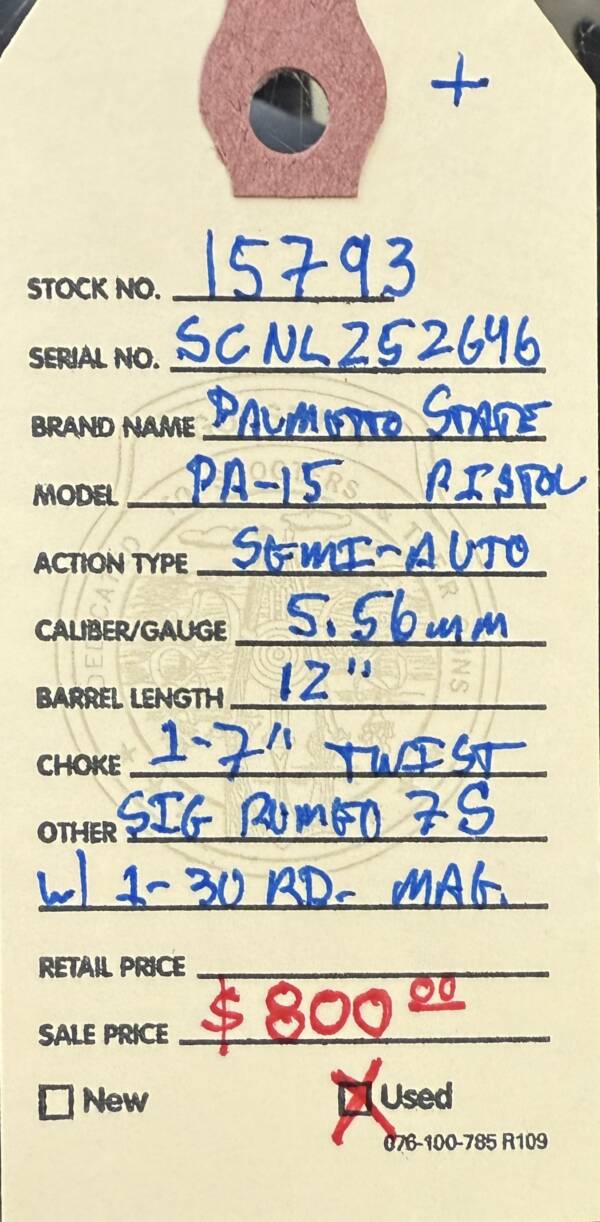 +
STOCK NO. 15793
SERIAL NO. SCNL252646
BRAND NAME PALMETTO STATE
MODEL PA-15 PISTOL
ACTION TYPE SEMI-AUTO
CALIBER/GAUGE 5.56mm
BARREL LENGTH 12"
CHOKE 1-7" TWIST
OTHER SIG ROMEO 7S
w/ 1-30 RD- MAG.
RETAIL PRICE
SALE PRICE $800.00
New X Used
076-100-785 R109